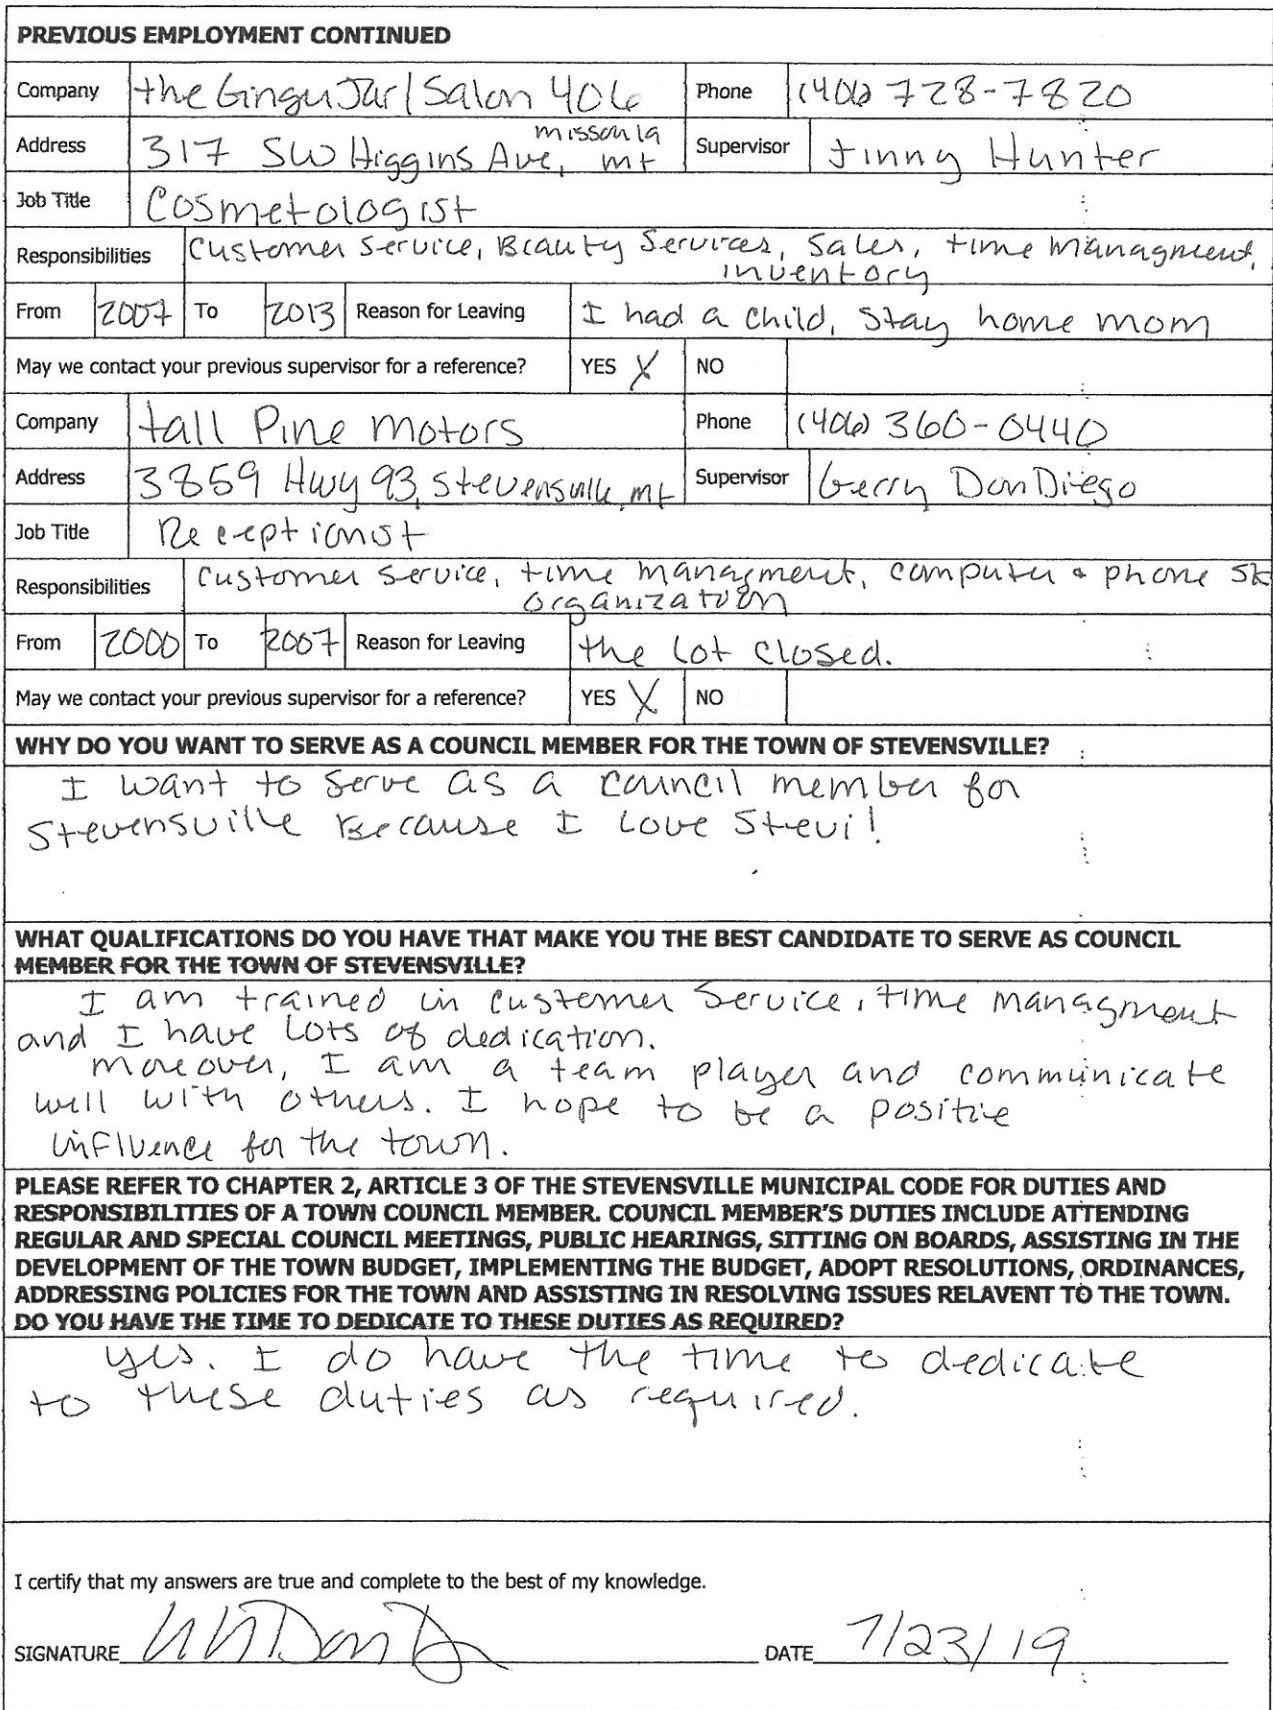 PREVIOUS EMPLOYMENT CONTINUED
Company the Ginger Jar/Salon 406 Phone (406) 728-7820
Address 317 SW Higgins Ave, missoula mt Supervisor Jinny Hunter
Job Title Cosmetologist
Responsibilities Customer Service, Beauty Services, Sales, time managment, inventory
From 2007 To 2013 Reason for Leaving I had a child, stay home mom
May we contact your previous supervisor for a reference? YES X NO
Company tall Pine motors Phone (406) 360-0440
Address 3859 Hwy 93, Stevensville, mt Supervisor Gerry DonDiego
Job Title Receptionist
Responsibilities Customer service, time managment, computer & phone sk
organization
From 2000 To 2007 Reason for Leaving the lot closed.
May we contact your previous supervisor for a reference? YES X NO
WHY DO YOU WANT TO SERVE AS A COUNCIL MEMBER FOR THE TOWN OF STEVENSVILLE?
I want to serve as a council member for
Stevensville Because I Love Stevi!
WHAT QUALIFICATIONS DO YOU HAVE THAT MAKE YOU THE BEST CANDIDATE TO SERVE AS COUNCIL
MEMBER FOR THE TOWN OF STEVENSVILLE?
I am trained in customer service, time managment
and I have lots of dedication.
moreover, I am a team player and communicate
well with others. I hope to be a positive
influence for the town.
PLEASE REFER TO CHAPTER 2, ARTICLE 3 OF THE STEVENSVILLE MUNICIPAL CODE FOR DUTIES AND
RESPONSIBILITIES OF A TOWN COUNCIL MEMBER. COUNCIL MEMBER'S DUTIES INCLUDE ATTENDING
REGULAR AND SPECIAL COUNCIL MEETINGS, PUBLIC HEARINGS, SITTING ON BOARDS, ASSISTING IN THE
DEVELOPMENT OF THE TOWN BUDGET, IMPLEMENTING THE BUDGET, ADOPT RESOLUTIONS, ORDINANCES,
ADDRESSING POLICIES FOR THE TOWN AND ASSISTING IN RESOLVING ISSUES RELAVENT TO THE TOWN.
DO YOU HAVE THE TIME TO DEDICATE TO THESE DUTIES AS REQUIRED?
yes. I do have the time to dedicate
to these duties as required.
I certify that my answers are true and complete to the best of my knowledge.
SIGNATURE DATE 7/23/19